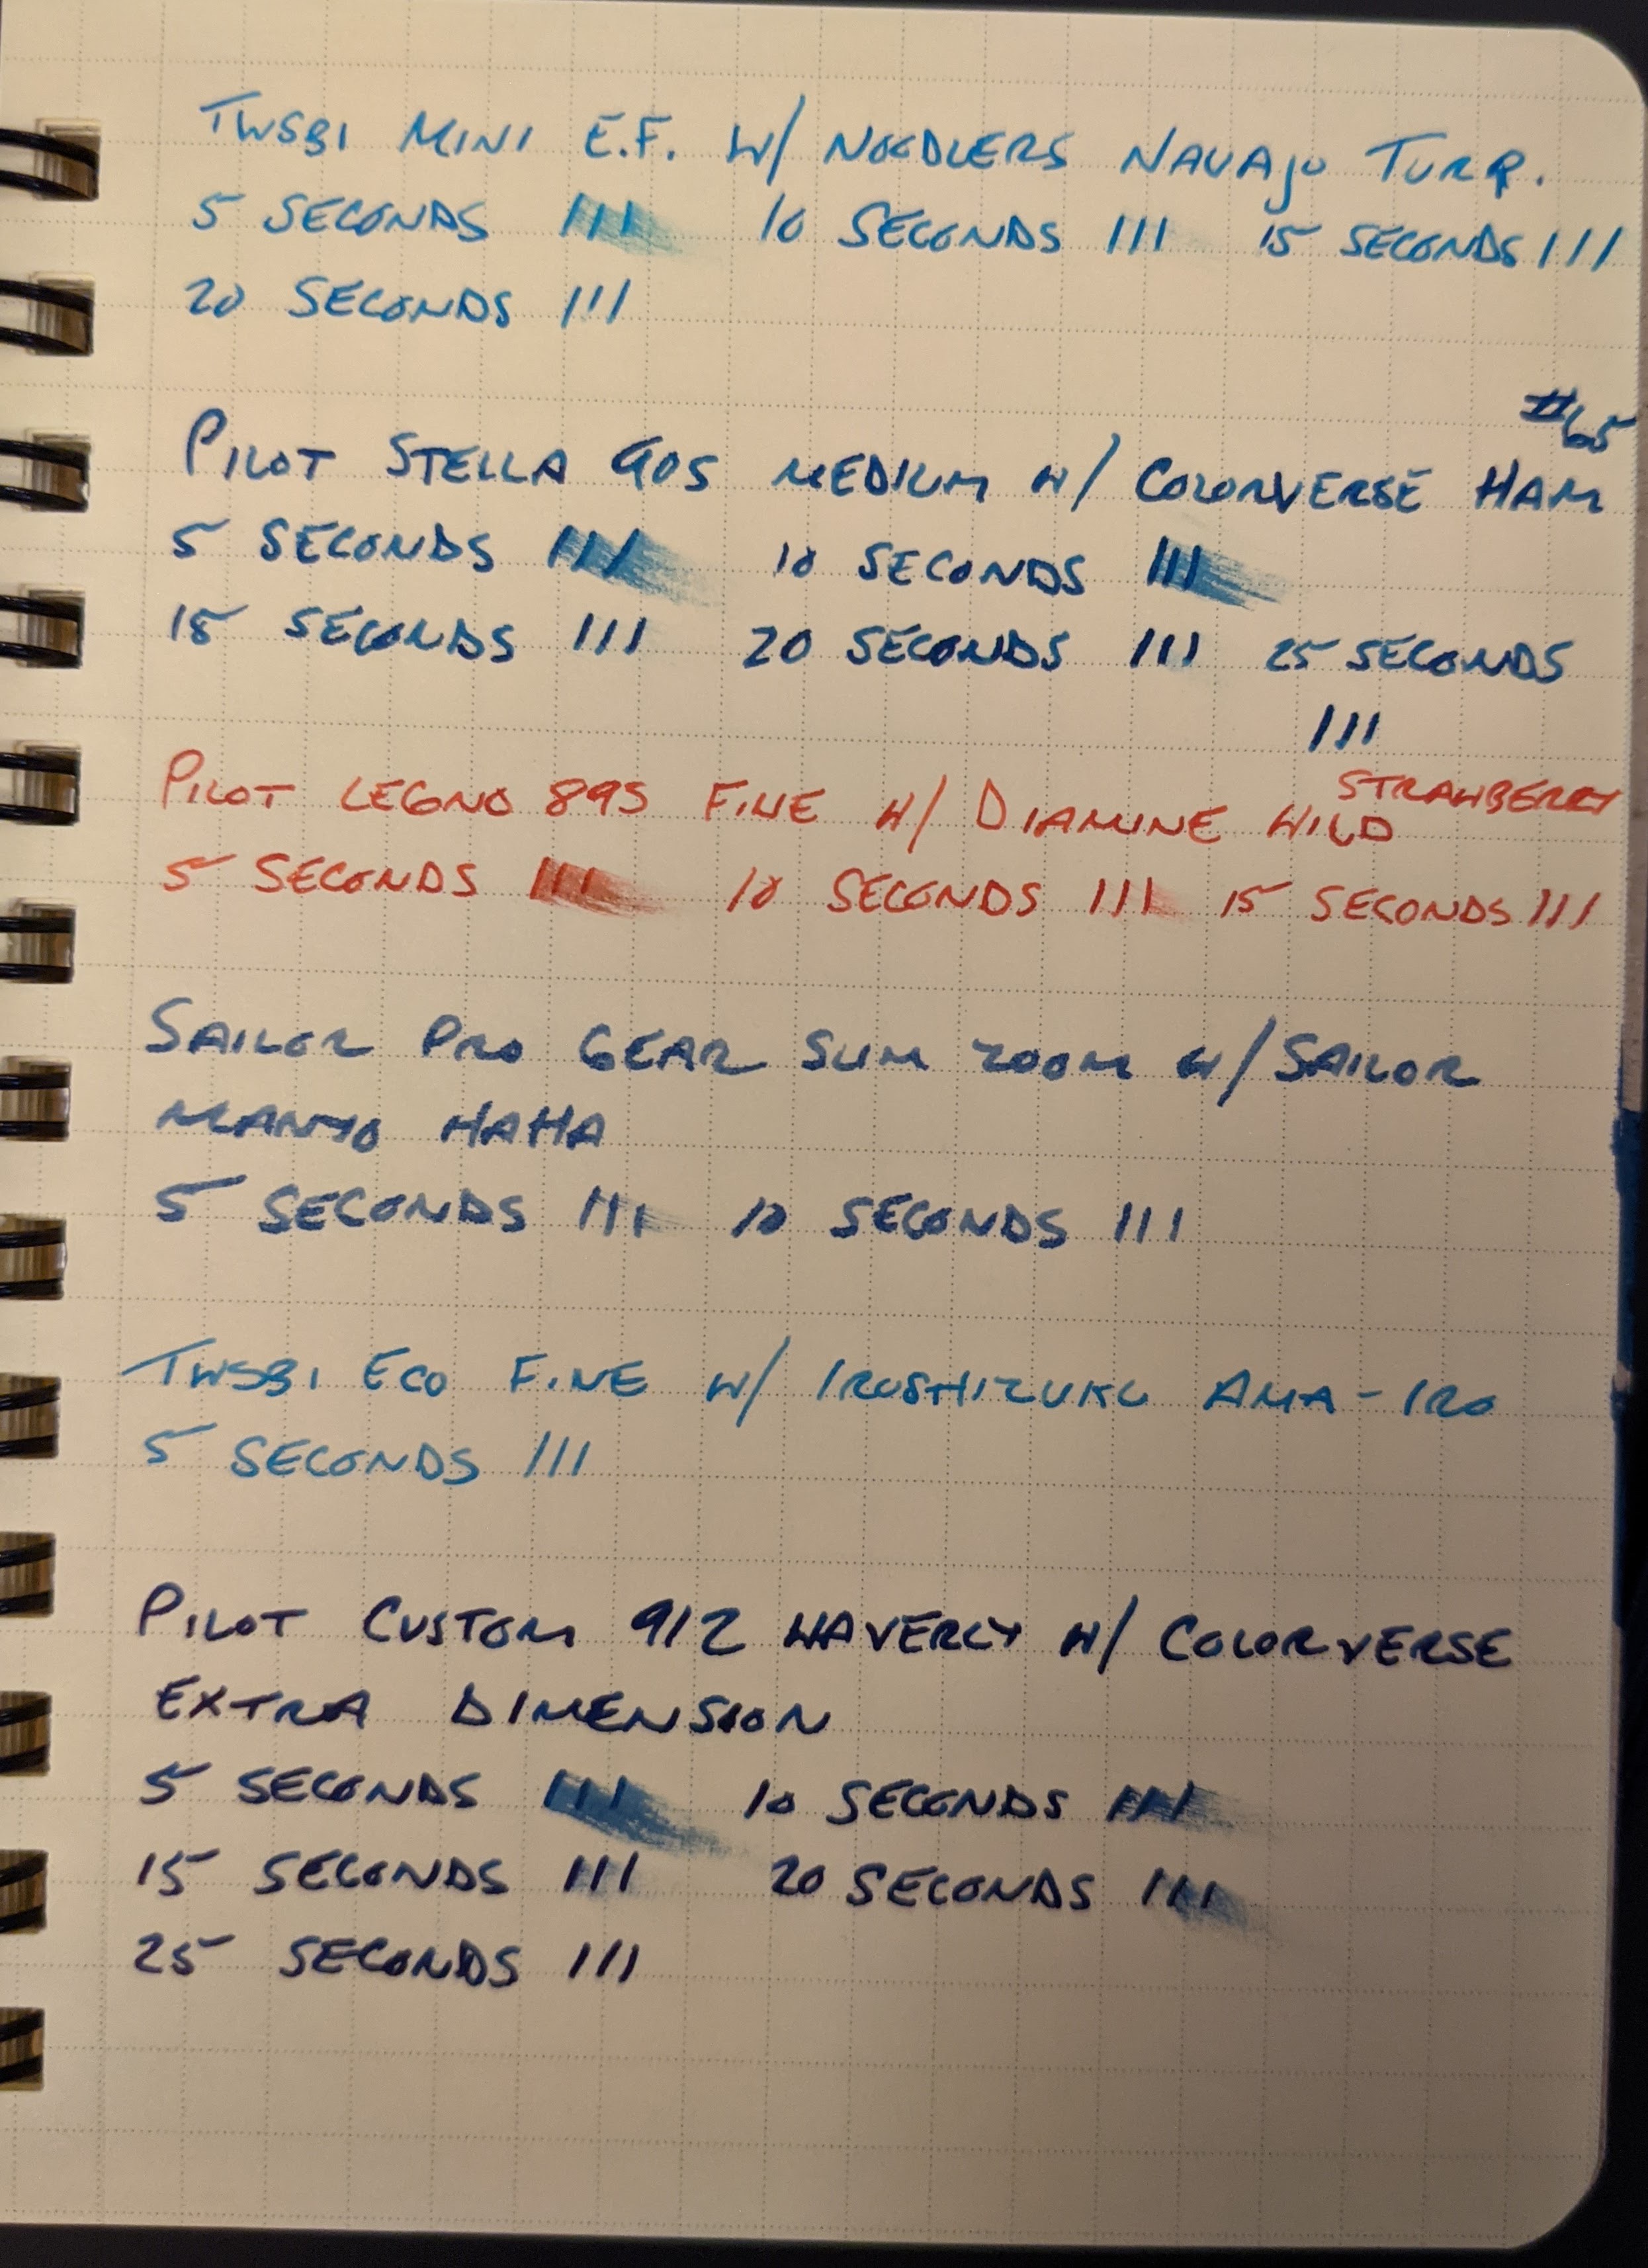 TWSBI MINI E.F. W/ NOODLERS NAVAJO TURQ.
5 SECONDS III 10 SECONDS III 15 SECONDS III
20 SECONDS III
#65
PILOT STELLA 90S MEDIUM W/ COLORVERSE HAM
5 SECONDS III 10 SECONDS III
15 SECONDS III 20 SECONDS III 25 SECONDS
III
STRAWBERRY
PILOT LEGNO 89S FINE W/ DIAMINE WILD
5 SECONDS III 10 SECONDS III 15 SECONDS III
SAILOR PRO GEAR SLIM ZOOM W/ SAILOR
MANYO HAHA
5 SECONDS III 10 SECONDS III
TWSBI ECO FINE W/ IROSHIZUKU AMA-IRO
5 SECONDS III
PILOT CUSTOM 912 WAVERLY W/ COLORVERSE
EXTRA DIMENSION
5 SECONDS III 10 SECONDS III
15 SECONDS III 20 SECONDS III
25 SECONDS III